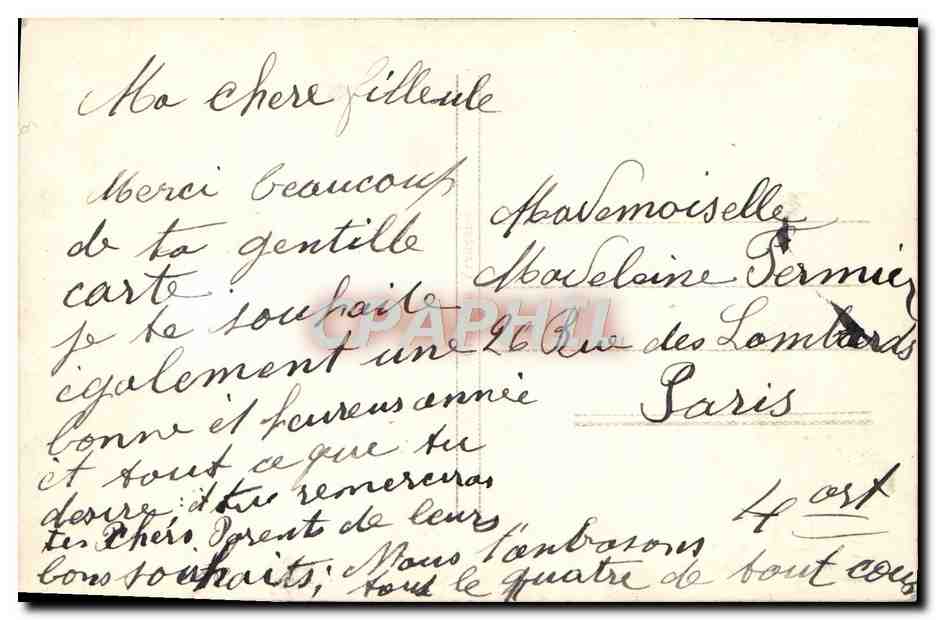 Ma chere filleule
Merci beaucoup
de ta gentille
carte
je te souhaite
également une
bonne et heureus année
et tout ce que tu
desire et tu remerciras
tes chérs Parents de leurs
bons souhaits; Nous t'anbrasons
tout le quatre de tout coeur
Mademoiselle
Madeleine Permier
26 Rue des Lombards
Paris
4 art
CPAPHIL